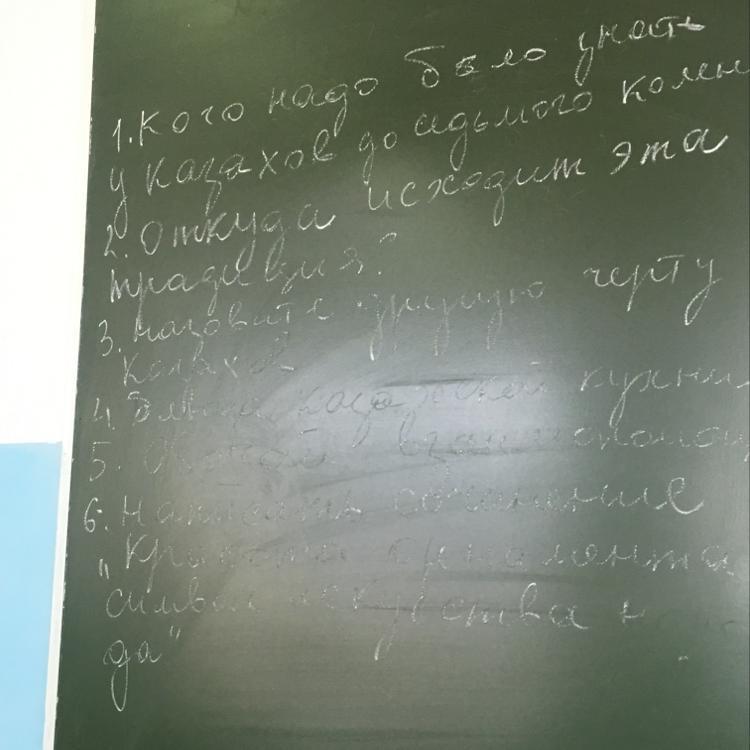 1. Кого надо было знать
у казахов до седьмого колен
2. Откуда исходит эта
традиция?
3. Назовите другую черту
казахов
4. Блюда казахской кухни
5. взаимопомощ
6. Написать сочинение
„Красота орнамента
символ искусства
да"